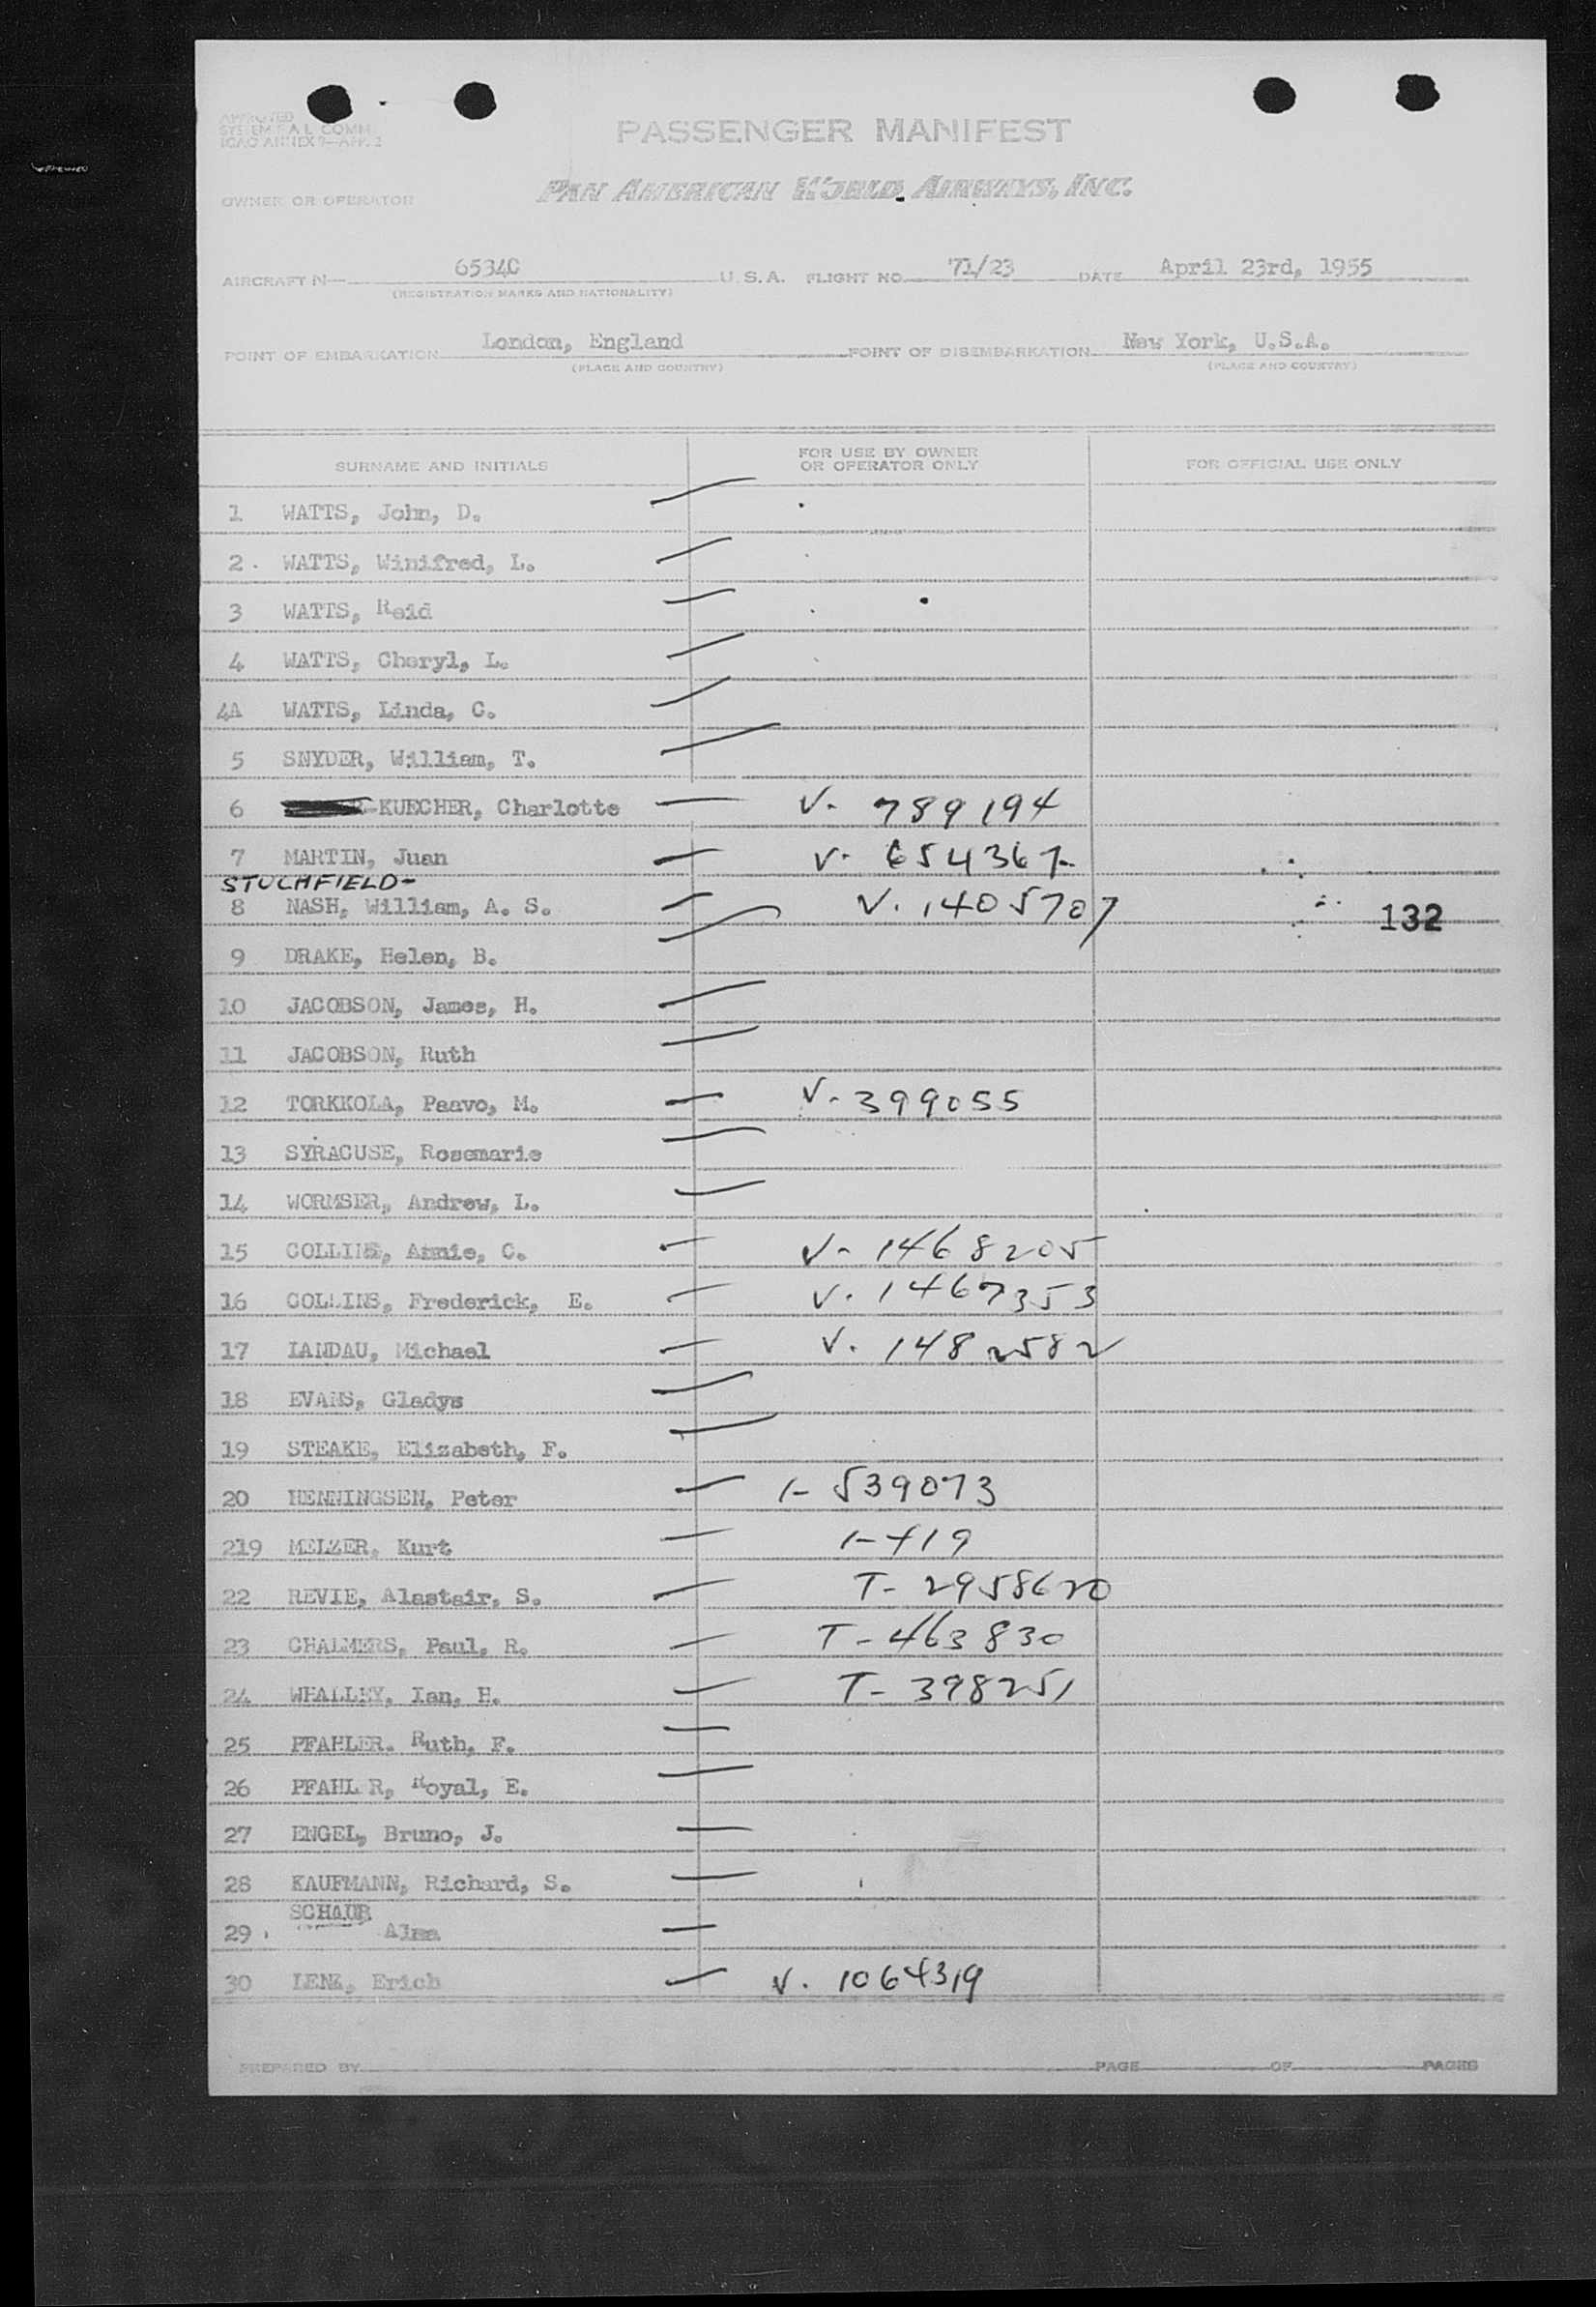 APPROVED
SYSTEM F A L COMM
ICAO ANNEX 9—APP. 2
PASSENGER MANIFEST
OWNER OR OPERATOR
PAN AMERICAN WORLD AIRWAYS, INC.
AIRCRAFT N— 65340 U. S. A. FLIGHT NO. 71/23 DATE April 23rd, 1955
(REGISTRATION MARKS AND NATIONALITY)
POINT OF EMBARKATION London, England POINT OF DISEMBARKATION New York, U.S.A.
(PLACE AND COUNTRY) (PLACE AND COUNTRY)
SURNAME AND INITIALS FOR USE BY OWNER OR OPERATOR ONLY FOR OFFICIAL USE ONLY
1 WATTS, John, D.
2 . WATTS, Winifred, L.
3 WATTS, Reid
4 WATTS, Cheryl, L.
4A WATTS, Linda, C.
5 SNYDER, William, T.
6 -KUECHER, Charlotte V- 789194
7 MARTIN, Juan V- 654367
STUCHFIELD-
8 NASH, William, A. S. V. 1405707 132
9 DRAKE, Helen, B.
10 JACOBSON, James, H.
11 JACOBSON, Ruth
12 TORKKOLA, Paavo, M. V- 399055
13 SYRACUSE, Rosemarie
14 WORMSER, Andrew, L.
15 COLLINS, Annie, C. V- 1468205
16 COLLINS, Frederick, E. V. 1467353
17 LANDAU, Michael V. 1482582
18 EVANS, Gladys
19 STEAKE, Elizabeth, F.
20 HENNINGSEN, Peter 1- 539073
219 MELZER, Kurt 1-419
22 REVIE, Alastair, S. T- 2958620
23 CHALMERS, Paul, R. T- 463830
24 WHALLEY, Ian, H. T- 398251
25 PFAHLER. Ruth, F.
26 PFAHL R, Royal, E.
27 ENGEL, Bruno, J.
28 KAUFMANN, Richard, S.
SCHAUB
29 Alma
30 LENZ, Erich V. 1064319
PREPARED BY PAGE OF PAGES